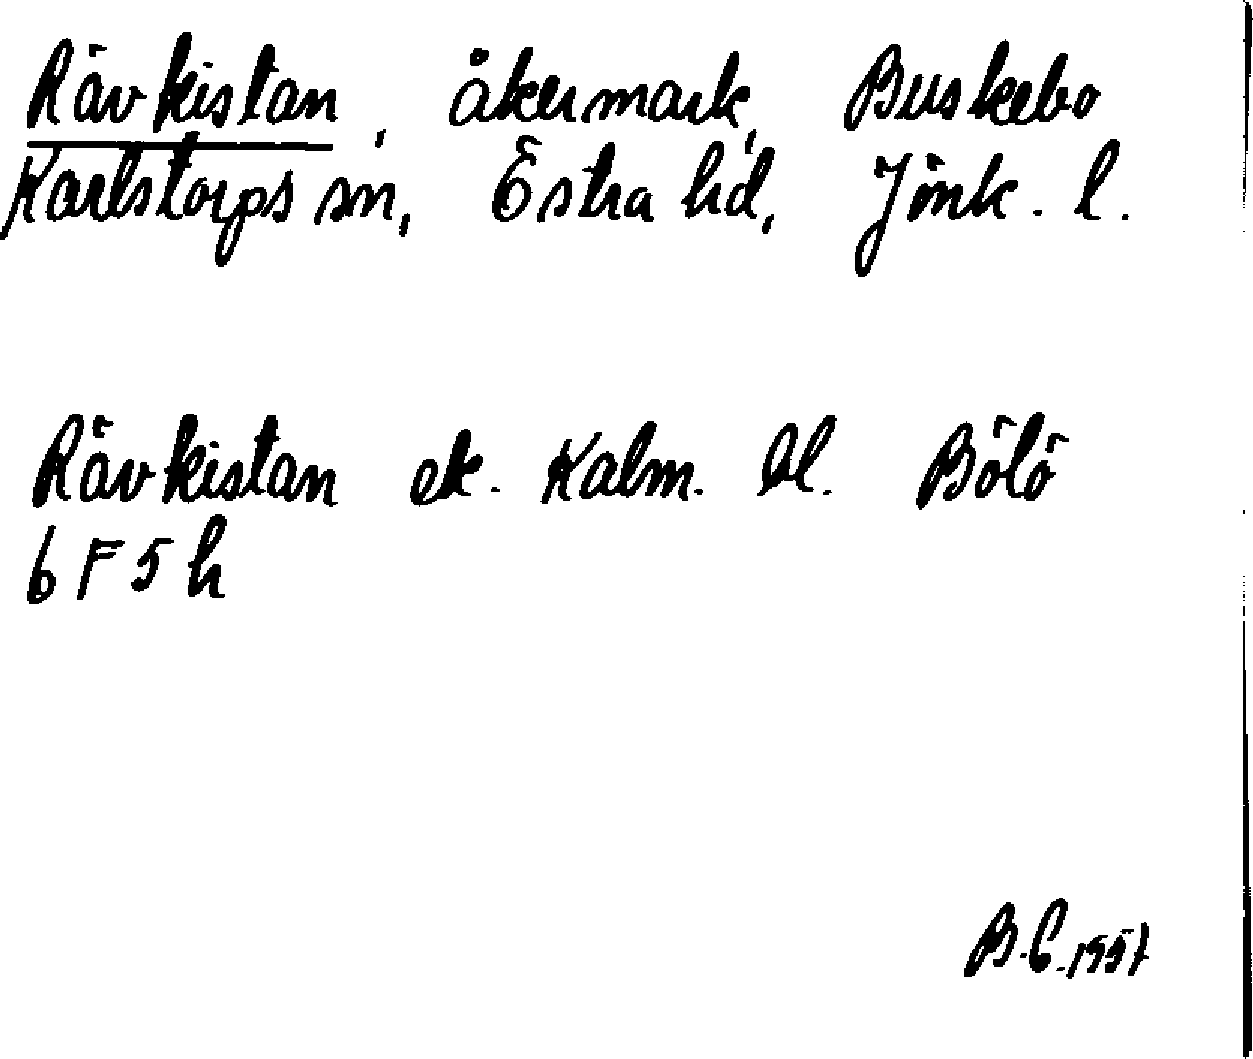 Rävkistan, åkermark, Buskebo
Karlstorps sn, Östra hd, Jönk. l.
Rävkistan ek. Kalm. bl. Bölö
6F5h
B.C. 1957